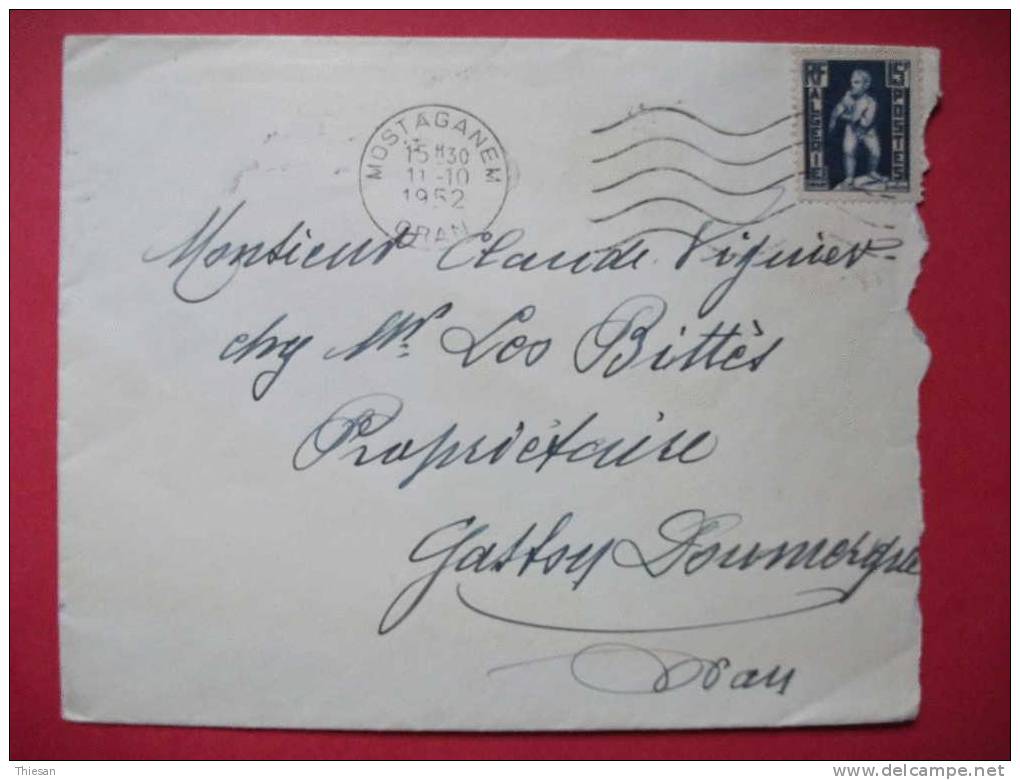 MOSTAGANEM
15 H 30
11 -10
1952
ORAN
RF
15
ALGERIE
POSTES
Monsieur Claude Viguier
chez Mr Leo Bittès
Propriétaire
Gaston Doumergue
Oran
Thiesan
www.delcampe.net